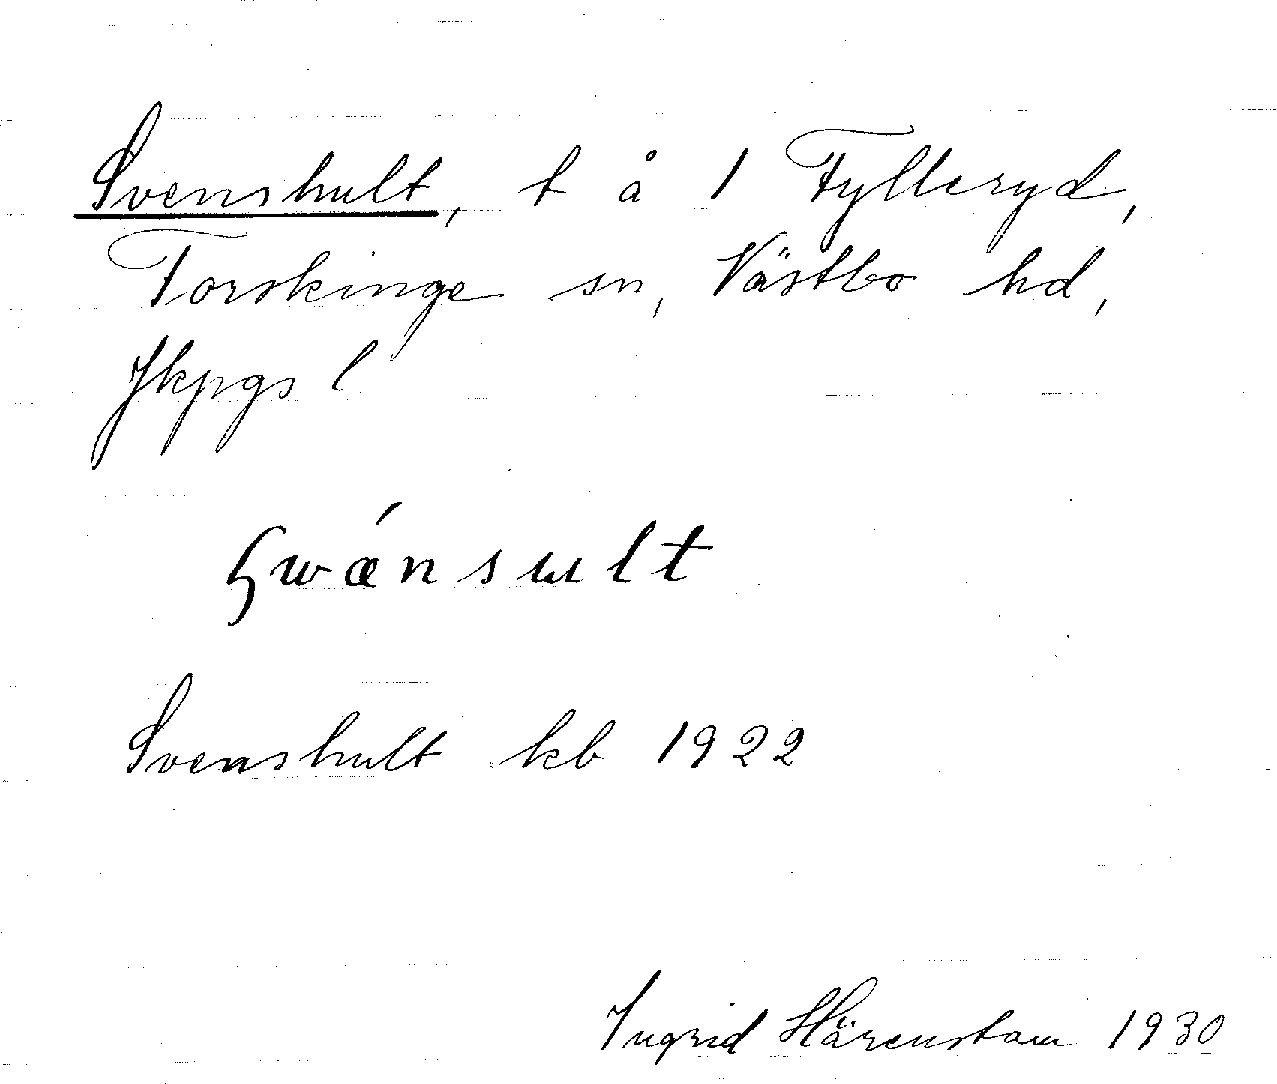 Svenshult, t å 1 Fylleryd,
Torskinge sn, Västbo hd,
Jkpgs l
swǽnsult
Svenshult kb 1922
Ingrid Härenstam 1930